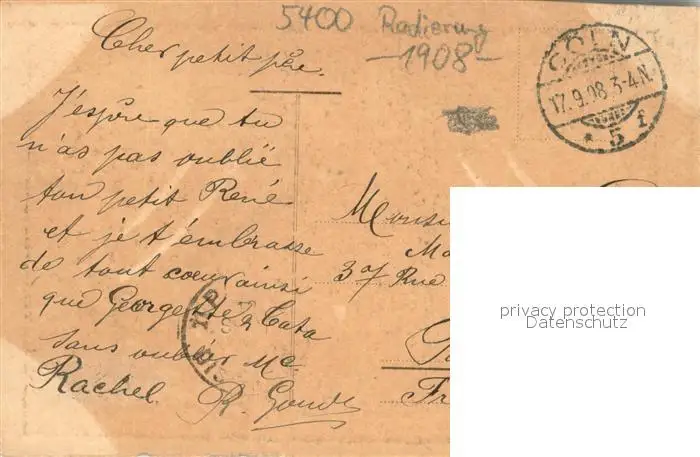 5400 Radierung
-1908-
Cher petit père.
J'espère que tu
n'as pas oublié
ton petit René
et je t'embrasse
de tout coeur ainsi
que Georgette & Tata
sans oublier Me
Rachel R.
CÖLN
17.9.08 3-4 N.
* 5 f
37 Rue
Fr
privacy protection
Datenschutz